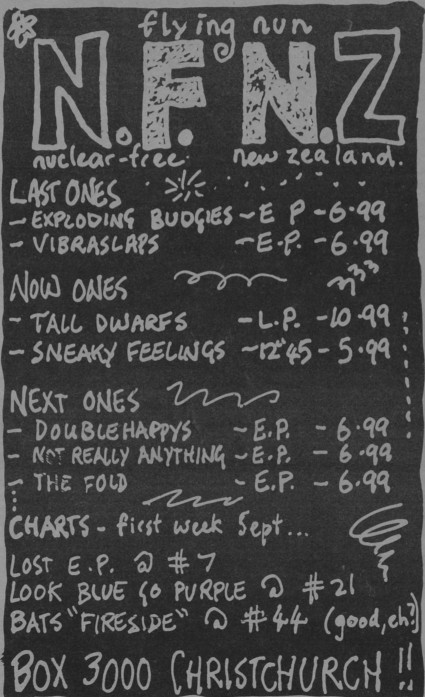 flying nun
N.F.N.Z
nuclear-free new zealand.
LAST ONES
- EXPLODING BUDGIES - E P - 6.99
- VIBRASLAPS - E.P. - 6.99
NOW ONES
- TALL DWARFS - L.P. - 10.99
- SNEAKY FEELINGS - 12"45 - 5.99
NEXT ONES
- DOUBLEHAPPYS - E.P. - 6.99
- NOT REALLY ANYTHING - E.P. - 6.99
- THE FOLD - E.P. - 6.99
CHARTS - first week Sept...
LOST E.P. @ #7
LOOK BLUE GO PURPLE @ #21
BATS "FIRESIDE" @ #44 (good, eh?)
BOX 3000 CHRISTCHURCH!!